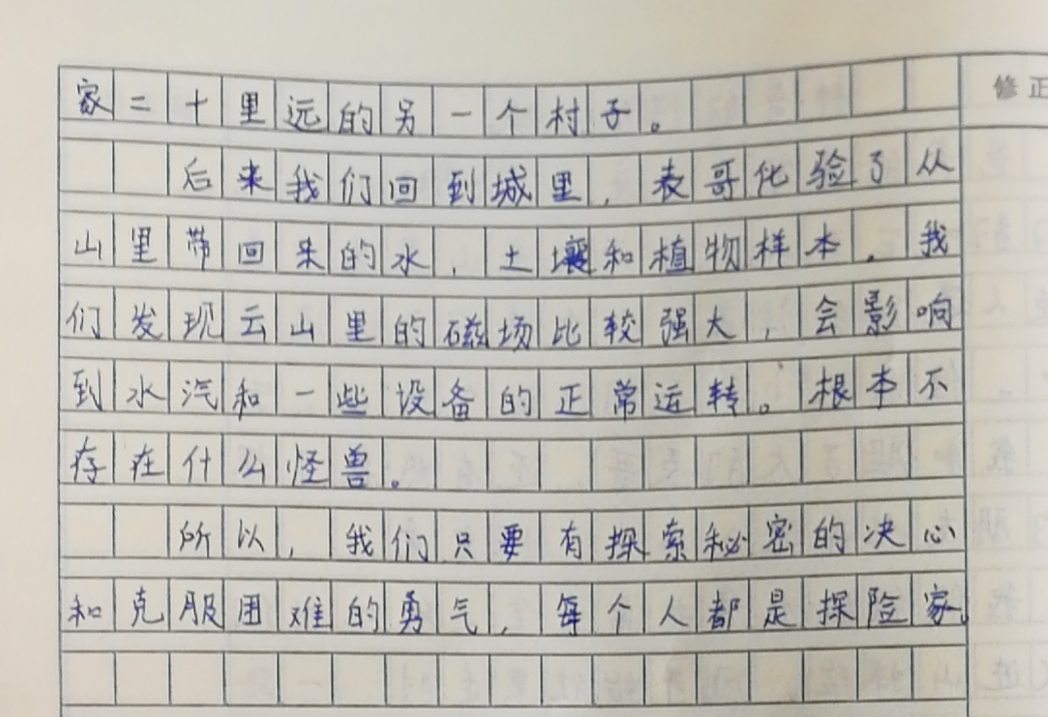 修正
家二十里远的另一个村子。
后来我们回到城里，表哥化验了从
山里带回来的水，土壤和植物样本。我
们发现云山里的磁场比较强大，会影响
到水汽和一些设备的正常运转。根本不
存在什么怪兽。
所以，我们只要有探索秘密的决心
和克服困难的勇气，每个人都是探险家。